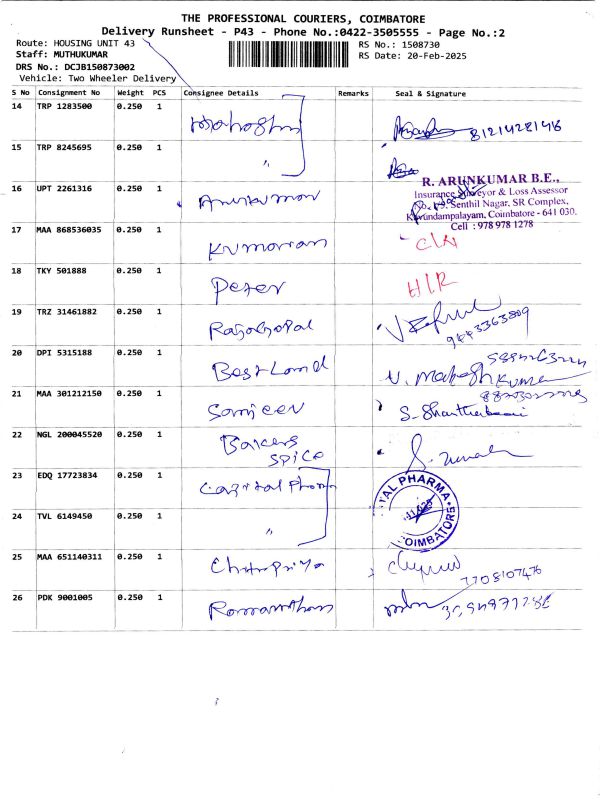 THE PROFESSIONAL COURIERS, COIMBATORE
Delivery Runsheet - P43 - Phone No.:0422-3505555 - Page No.:2
Route: HOUSING UNIT 43
RS No.: 1508730
Staff: MUTHUKUMAR
RS Date: 20-Feb-2025
DRS No.: DCJB150873002
Vehicle: Two Wheeler Delivery
S No Consignment No Weight PCS Consignee Details Remarks Seal & Signature
14 TRP 1283500 0.250 1
8121428146
15 TRP 8245695 0.250 1 "
R. ARUNKUMAR B.E.,
Insurance Surveyor & Loss Assessor
Senthil Nagar, SR Complex,
Kavundampalayam, Coimbatore - 641 030.
Cell : 978 978 1278
16 UPT 2261316 0.250 1 Arunkumar
17 MAA 868536035 0.250 1 Kumaran
18 TKY 501888 0.250 1 Peter H/R
19 TRZ 31461882 0.250 1 Rajagopal
9443363809
20 DPI 5315188 0.250 1 Bestland
21 MAA 301212150 0.250 1 Sanjeev
22 NGL 200045520 0.250 1 Bakers
SPICE
23 EDQ 17723834 0.250 1 Capital Pharma
PHARMA
COIMBATORE
24 TVL 6149450 0.250 1 "
25 MAA 651140311 0.250 1
7708107476
26 PDK 9001005 0.250 1 Ramanathan